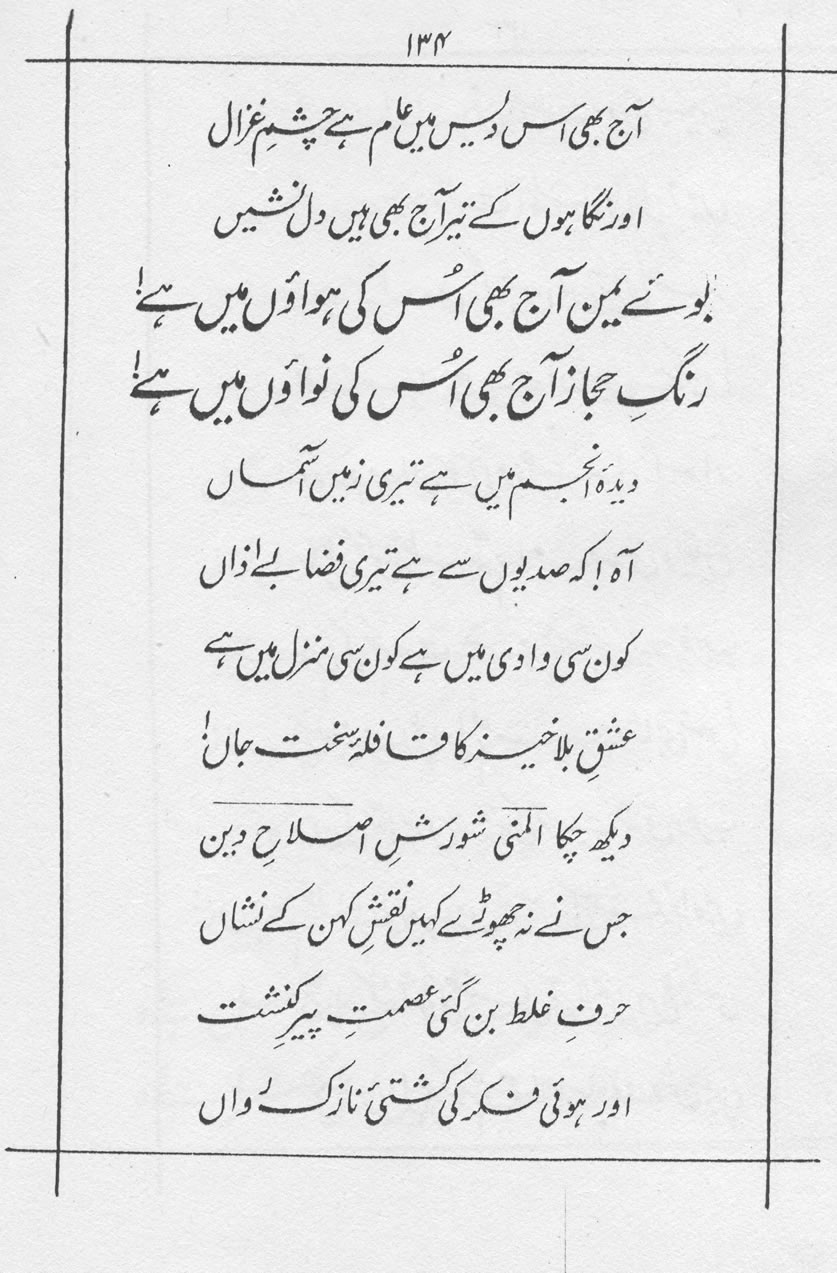 ۱۳۴
آج بھی اس دیس میں عام ہے چشمِ غزال
اور نگاہوں کے تیر آج بھی ہیں دل نشیں
بوئے یمن آج بھی اُس کی ہواؤں میں ہے!
رنگِ حجاز آج بھی اُس کی نواؤں میں ہے!
دیدۂ انجم میں ہے تیری زمیں آسماں
آہ! کہ صدیوں سے ہے تیری فضا بے اذاں
کون سی وادی میں ہے کون سی منزل میں ہے
عشقِ بلاخیز کا قافلۂ سخت جاں!
دیکھ چکا المنی شورشِ اصلاحِ دین
جس نے نہ چھوڑے کہیں نقشِ کہن کے نشاں
حرفِ غلط بن گئی عصمتِ پیرِ کنشت
اور ہوئی فکر کی کشتئ نازک رواں